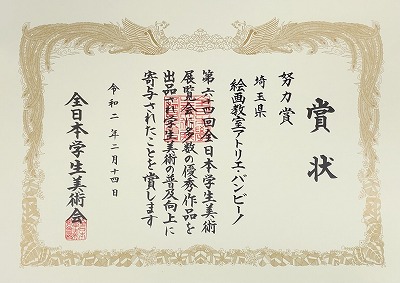 賞状
努力賞
埼玉県
絵画教室アトリエ・バンビーノ
第六十四回全日本学生美術
展覧会に多数の優秀作品を
出品され学生美術の普及向上に
寄与されたことを賞します
令和二年二月十四日
全日本学生美術会